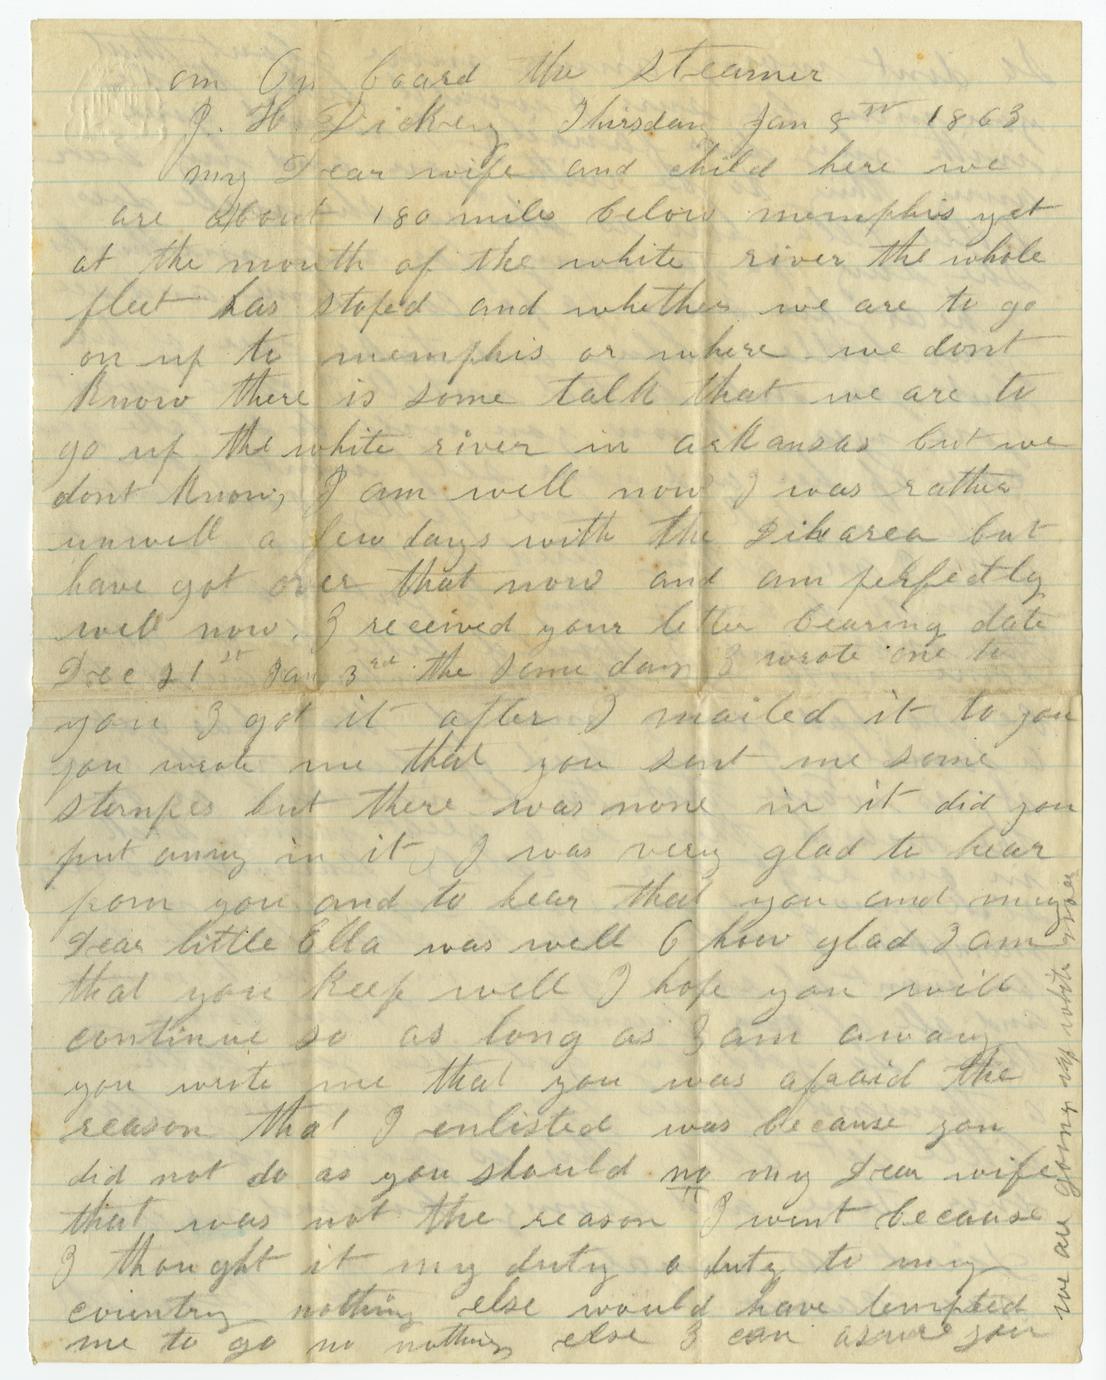 om On board the Steamer
J. H. Dickey Thirsday Jan 8th 1863
my Dear wife and child here we
are about 180 miles below memphis yet
at the mouth of the white river the whole
fleet has stoped and whether we are to go
on up to memphis or where we dont
know there is some talk that we are to
go up the white river in arkansas but we
dont know, I am well now I was rather
unwell a few days with the Diharea but
have got over that now and am perfectly
well now. I received your letter bearing date
Dec 21st Jan 3rd the same day I wrote one to
you I got it after I mailed it to you
you wrote me that you sent me some
stampes but there was none in it did you
put anny in it, I was very glad to hear
from you and to hear that you and my
Dear little Ella was well O how glad I am
that you keep well I hope you will
continue so as long as I am away
you wrote me that you was afraid the
reason that I enlisted was because you
did not do as you should no my Dear wife
that was not the reason I went because
I thought it my duty a duty to my
country nothing else would have tempted
me to go no nothing else I can asure you
we are going up white river